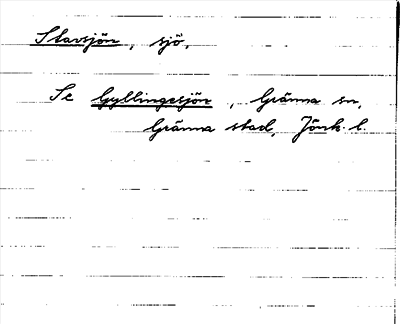 Stavsjön, sjö,
Se Gyllingesjön, Gränna sn,
Gränna stad, Jönk. l.